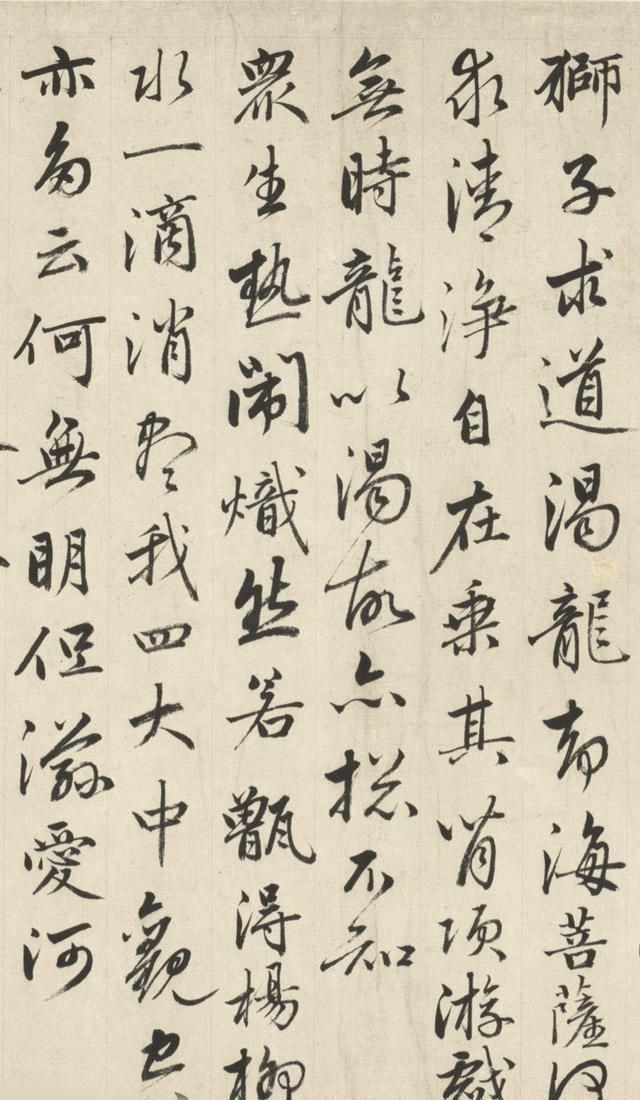 獅子求道渴龍海菩薩
求清淨自在乘其背項游戲
無時龍以渴故亦摠不知
衆生熱鬧熾然若甑得楊柳
水一滴消盡我四大中觀
亦云何無明但滋愛河